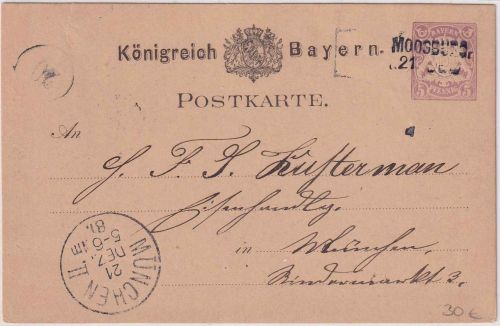 Königreich Bayern.
BAYERN
5 5
PFENNIG
MOOSBURG.
21 DEZ
20
POSTKARTE.
An
H. F. S. Kustermann
Eisenhandlg.
in München,
Rindermarkt 3.
MÜNCHEN II.
21
DEZ.
5-6
81.
30 €